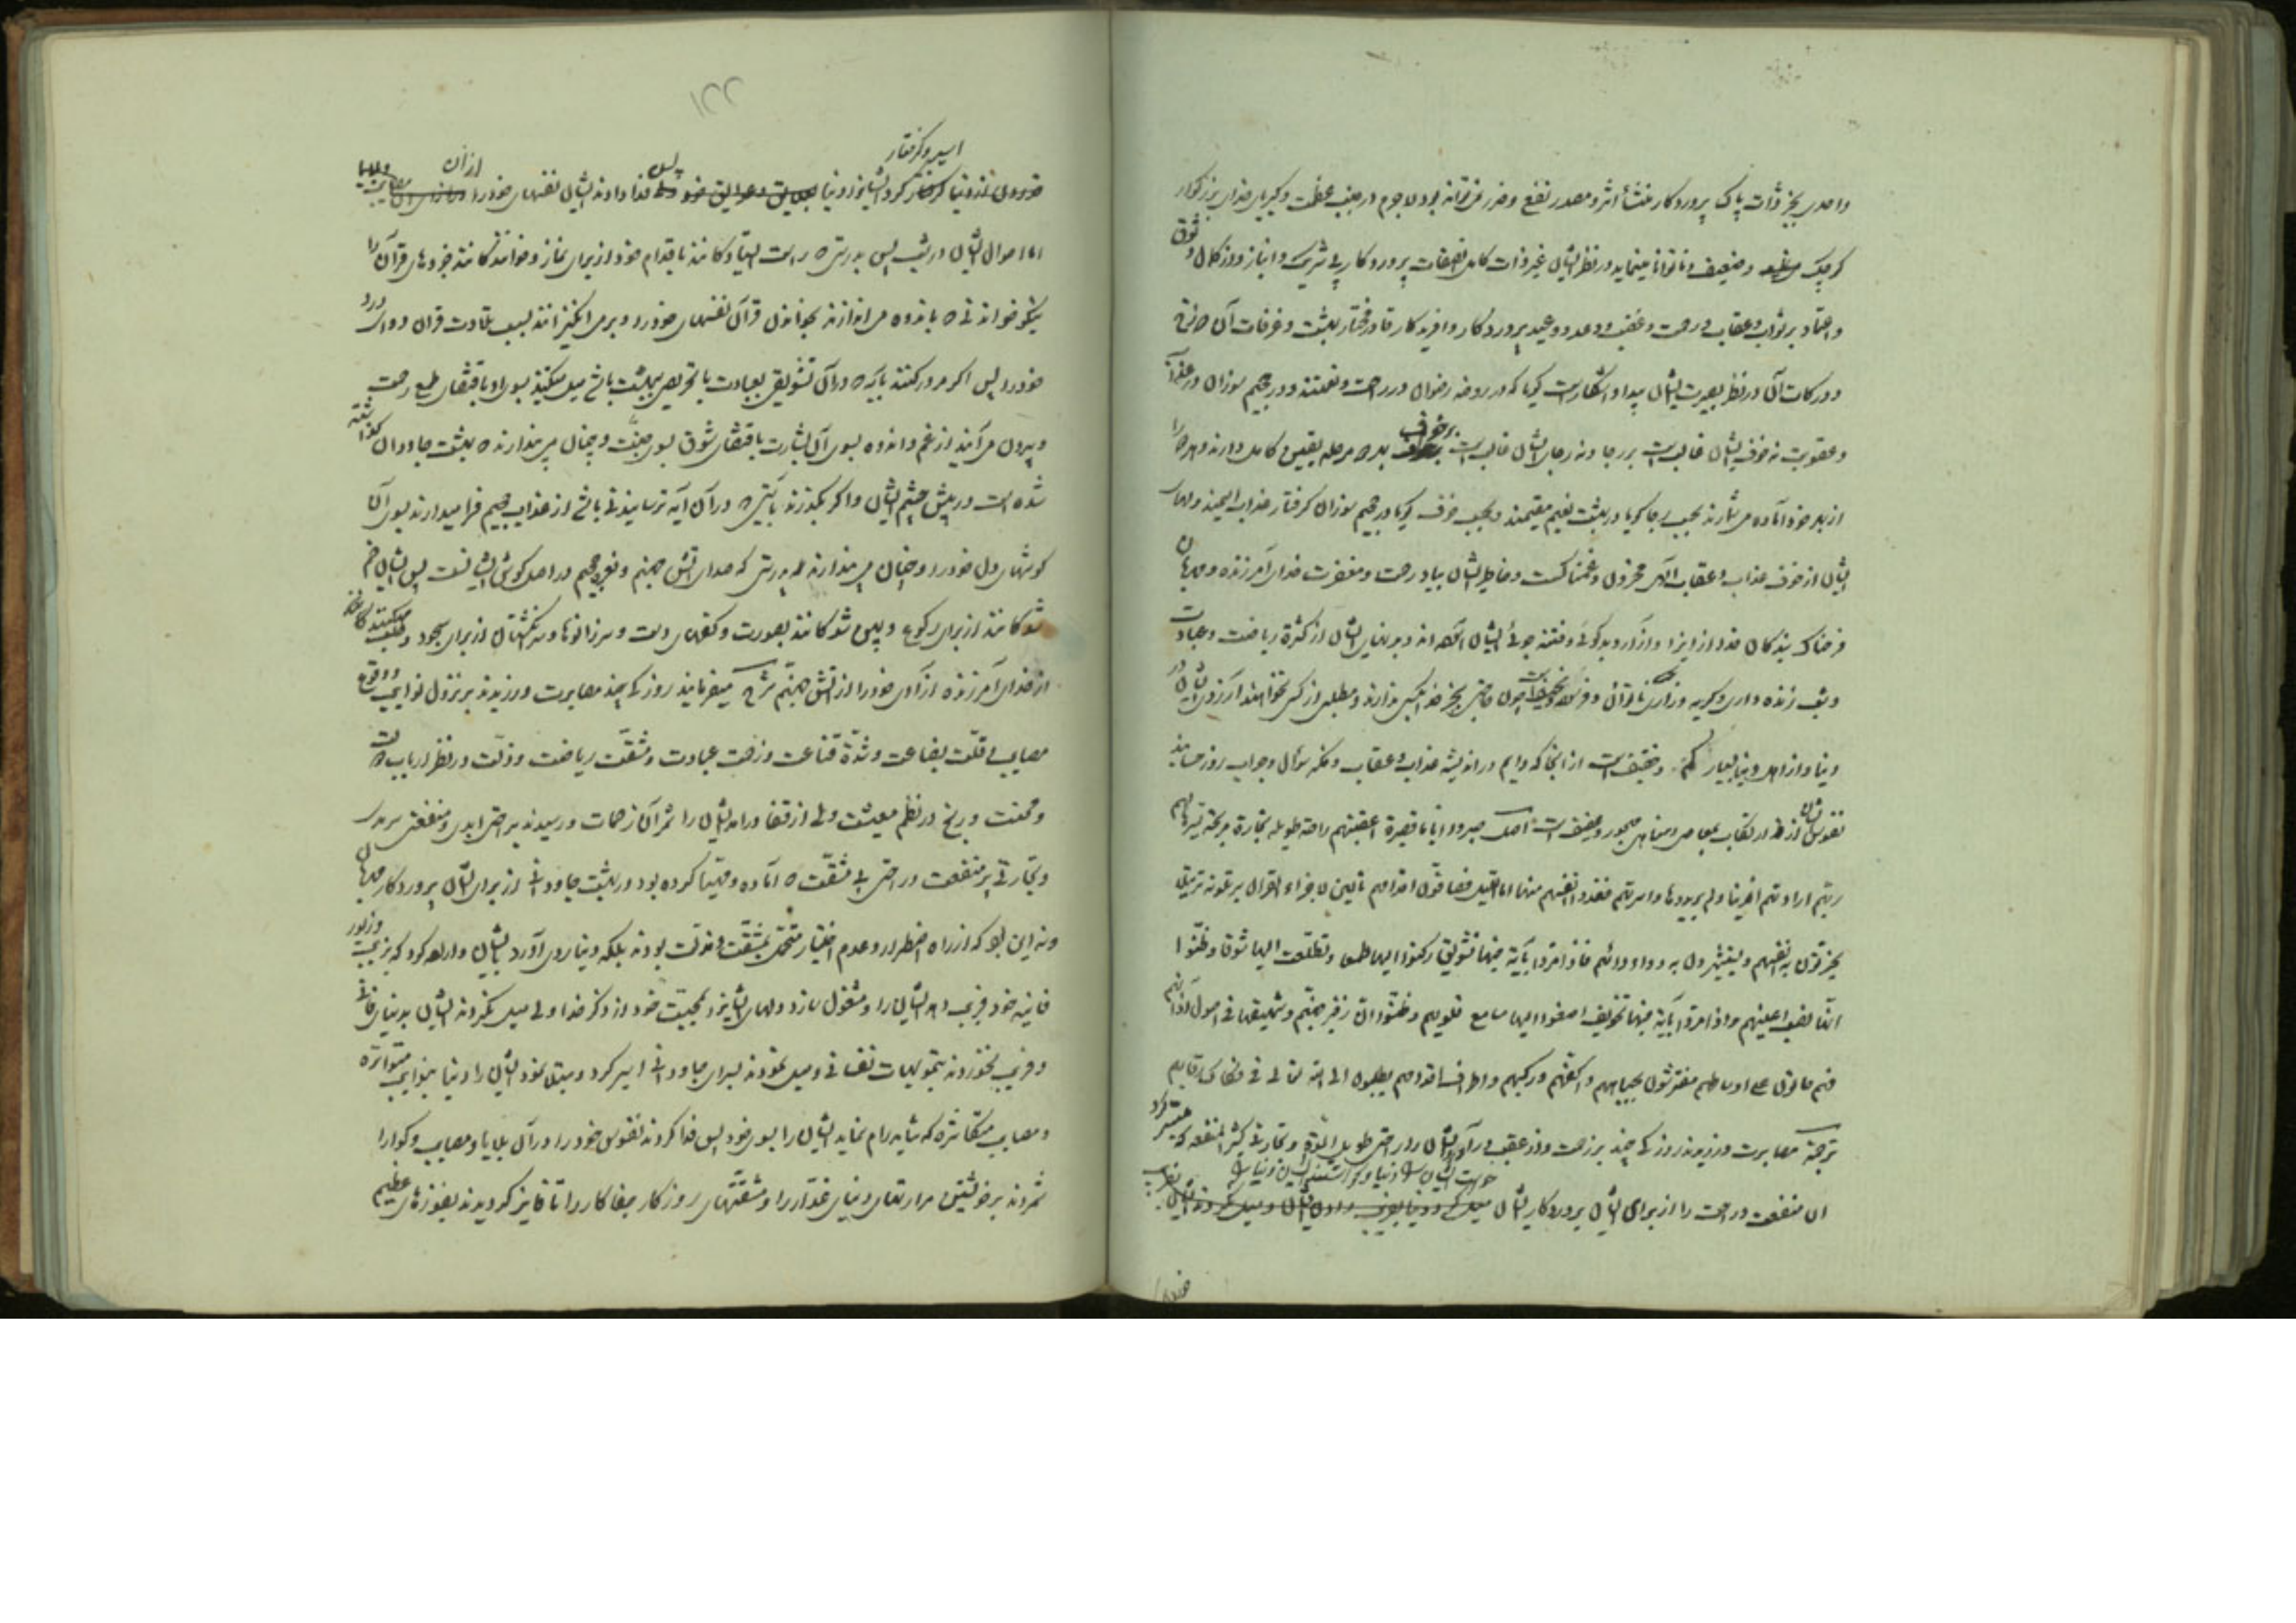 واحدی بجز ذات پاک پروردگار منشأ اثر و مصدر نفع و ضرر نمی‌تواند بود لاجرم در جنب عظمت و کبریای خدای بزرگوار
کوچک و ضعیف و ناتوانا مینماید در نظر ایشان غیر ذات کامل الصفات پروردگار بی شریک و انباز و از کمال وثوق
و اعتماد بر ثواب و عقاب و رحمت و غضب و وعد و وعید پروردگار و آفریدگار قادر مختار بهشت و غرفات آن
و درکات آن در نظر بصیرت ایشان پیدا و آشکار است گویا که در روضه رضوان در راحت و نعمتند و در جحیم سوزان در عذاب
و عقوبت نه خوف ایشان غالبست بر رجا و نه رجای ایشان غالبست بر خوف بلکه مرحله یقین کامل دارند و هر دو را
از بهر خود آماده می‌شمارند بحسب رجا گویا در بهشت نعیم مقیمند و بحسب خوف گویا در جحیم سوزان گرفتار عذاب الیمند و دلهای
ایشان از خوف عذاب و عقاب الهی محزون و غمناکست و خاطر ایشان بیاد رحمت و مغفرت خدای آمرزنده و مهربان
فرحناک بندگان خدا از ایذا و آزار و بدگوئی و فتنه جوئی ایشان آسوده‌اند و بدنهای ایشان از کثرة ریاضت و عبادت
و شب زنده داری و گریه و زاری ناتوان و چون حاجتی بجز خدا بکس ندارند و مطلبی از کس نخواهند آرزوی ایشان در
دنیا و از اهل دنیا بسیار کم و خفیف است از آنجا که دایم در اندیشه عذاب و عقاب و فکر سؤال و جواب روز حسابند
نفوس ایشان از ارتکاب معاصی و مناهی مهجور و عفیف است اصل صبروا ایاما قصیرة اعقبتهم راحة طویلة تجارة مربحة یسرها لهم
ربهم ارادتهم الدنیا و لم یریدوها و اسرتهم ففدوا انفسهم منها اما اللیل فصافون اقدامهم تالین لاجزاء القرآن یرتلونه ترتیلا
یحزنون به انفسهم و یستثیرون به دواء دائهم فاذا مروا بآیة فیها تشویق رکنوا الیها طمعا و تطلعت الیها شوقا و ظنوا
انها نصب اعینهم و اذا مروا بآیة فیها تخویف اصغوا الیها مسامع قلوبهم و ظنوا ان زفیر جهنم و شهیقها فی اصول آذانهم
فهم حانون علی اوساطهم مفترشون لجباههم و اکفهم و رکبهم و اطراف اقدامهم یطلبون الی الله تعالی فی فکاک رقابهم
ترجمة مصابرت ورزیدند روزکی چند بر زحمت و در عقب درآورد ایشان را راحتی طویل المدة و تجارتی کثیر المنفعه که میسر کرد
آن منفعت و راحت را از برای ایشان پروردگار ایشان
۱۲۲
اسیر و گرفتار
اما احوال ایشان در شب پس بدرستی که راست ایستادگانند باقدام خود از برای نماز و خوانندگانند جزوهای قرآن را
نیکو خواندنی که باندوه می‌اندازند بخواندن قرآن نفسهای خود را و برمی‌انگیزانند بسبب تلاوت قرآن دوای درد
خود را پس اگر مرور کنند بآیه که در آن تشویق بعبادت یا تحریص ببهشت باشد میل میکنند بسوی او باقتضای طمع رحمت
و بیرون می‌آیند از غم و اندوه بسوی آن بشارت باقتضای شوق بسوی جنت و چنان می‌پندارند که بهشت جاودان
شده است در پیش چشم ایشان و اگر بگذرند بآیتی که در آن آیه ترسانیدنی باشد از عذاب جحیم فرا میدارند بسوی آن
گوشهای دل خود را و چنان می‌پندارند که بدرستی که صدای آتش جهنم و نعره جحیم در اصل گوش ایشانست پس ایشان خم
شوگانند از برای رکوع و پهن شوگانند بصورت و کفهای دست و سر زانوها و سر انگشتان از برای سجود و طلب میکنندگانند
از خدای آمرزنده آزادی خود را از آتش جهنم شرح میفرمایند روزکی چند مصابرت ورزیدند بر نزول نوایب و وقوع
مصایب از قلت بضاعت و شدة قناعت و زحمت عبادت و مشقت ریاضت و ذلت در نظر ارباب
و محنت و رنج در نظم معیشت ولی از قفا درآمد ایشان را ثمر آن زحمات و رسیدند براحتی ابدی و منفعتی سرمدی
و تجارتی پر منفعت و راحتی بی مشقت که آماده و مهیا کرده بود در بهشت جاودانی از برای ایشان پروردگار مهربان
و نه این بود که از راه اضطرار و عدم اختیار متحمل مشقت و مذلت بودند بلکه دنیا روی آورد بایشان و اراده کرد که بزینت و زیور
فانیه خود فریب دهد ایشان را و مشغول سازد دلهای ایشانرا بمحبت خود از ذکر خدا ولی میل نکردند ایشان بدنیای فانی
و فریب نخوردند بتمویهات نفسانی و میل نمودند بسرای جاودانی اسیر کرد و مبتلا نمود ایشان را دنیا بنوایب متواتره
و مصایب متکاثره که شاید رام نماید ایشان را بسوی خود پس فدا کردند نفوس خود را در آن بلایا و مصایب و گوارا
شمردند بر خویشتن مرارتهای دنیای غدار را و مشقتهای روزگار جفاکار را تا فایز گردیدند بفوزهای عظیم